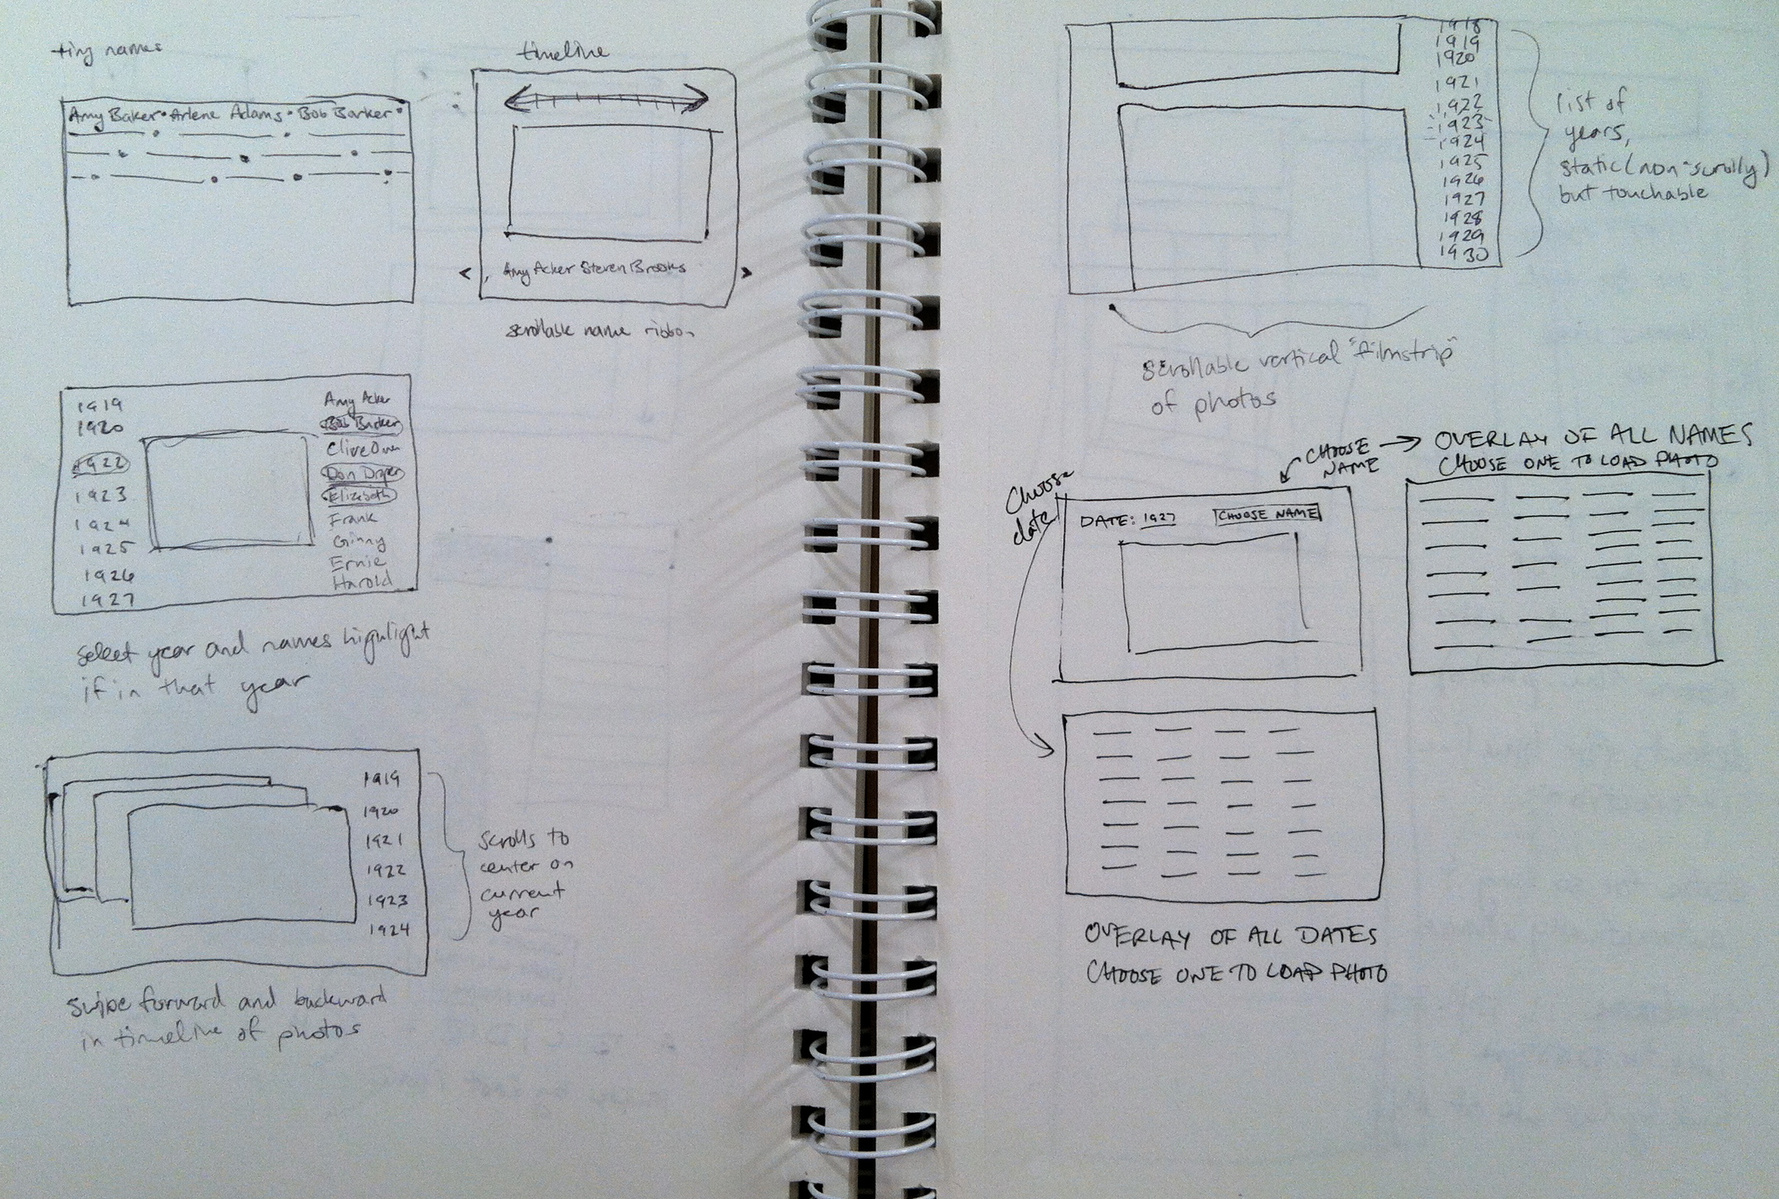 tiny names
Amy Baker • Arlene Adams • Bob Barker •
timeline
Amy Acker Steven Brooks
scrollable name ribbon
1919
1920
1922
1923
1924
1925
1926
1927
Amy Acker
Bob Barker
Clive Owen
Don Draper
Elizabeth
Frank
Ginny
Ernie
Harold
select year and names highlight
if in that year
1919
1920
1921
1922
1923
1924
scrolls to
center on
current
year
swipe forward and backward
in timeline of photos
1918
1919
1920
1921
1922
1923
1924
1925
1926
1927
1928
1929
1930
list of
years,
static (non-scrolly)
but touchable
scrollable vertical "filmstrip"
of photos
Choose
date
CHOOSE
NAME
OVERLAY OF ALL NAMES
CHOOSE ONE TO LOAD PHOTO
DATE: 1927
CHOOSE NAME
OVERLAY OF ALL DATES
CHOOSE ONE TO LOAD PHOTO